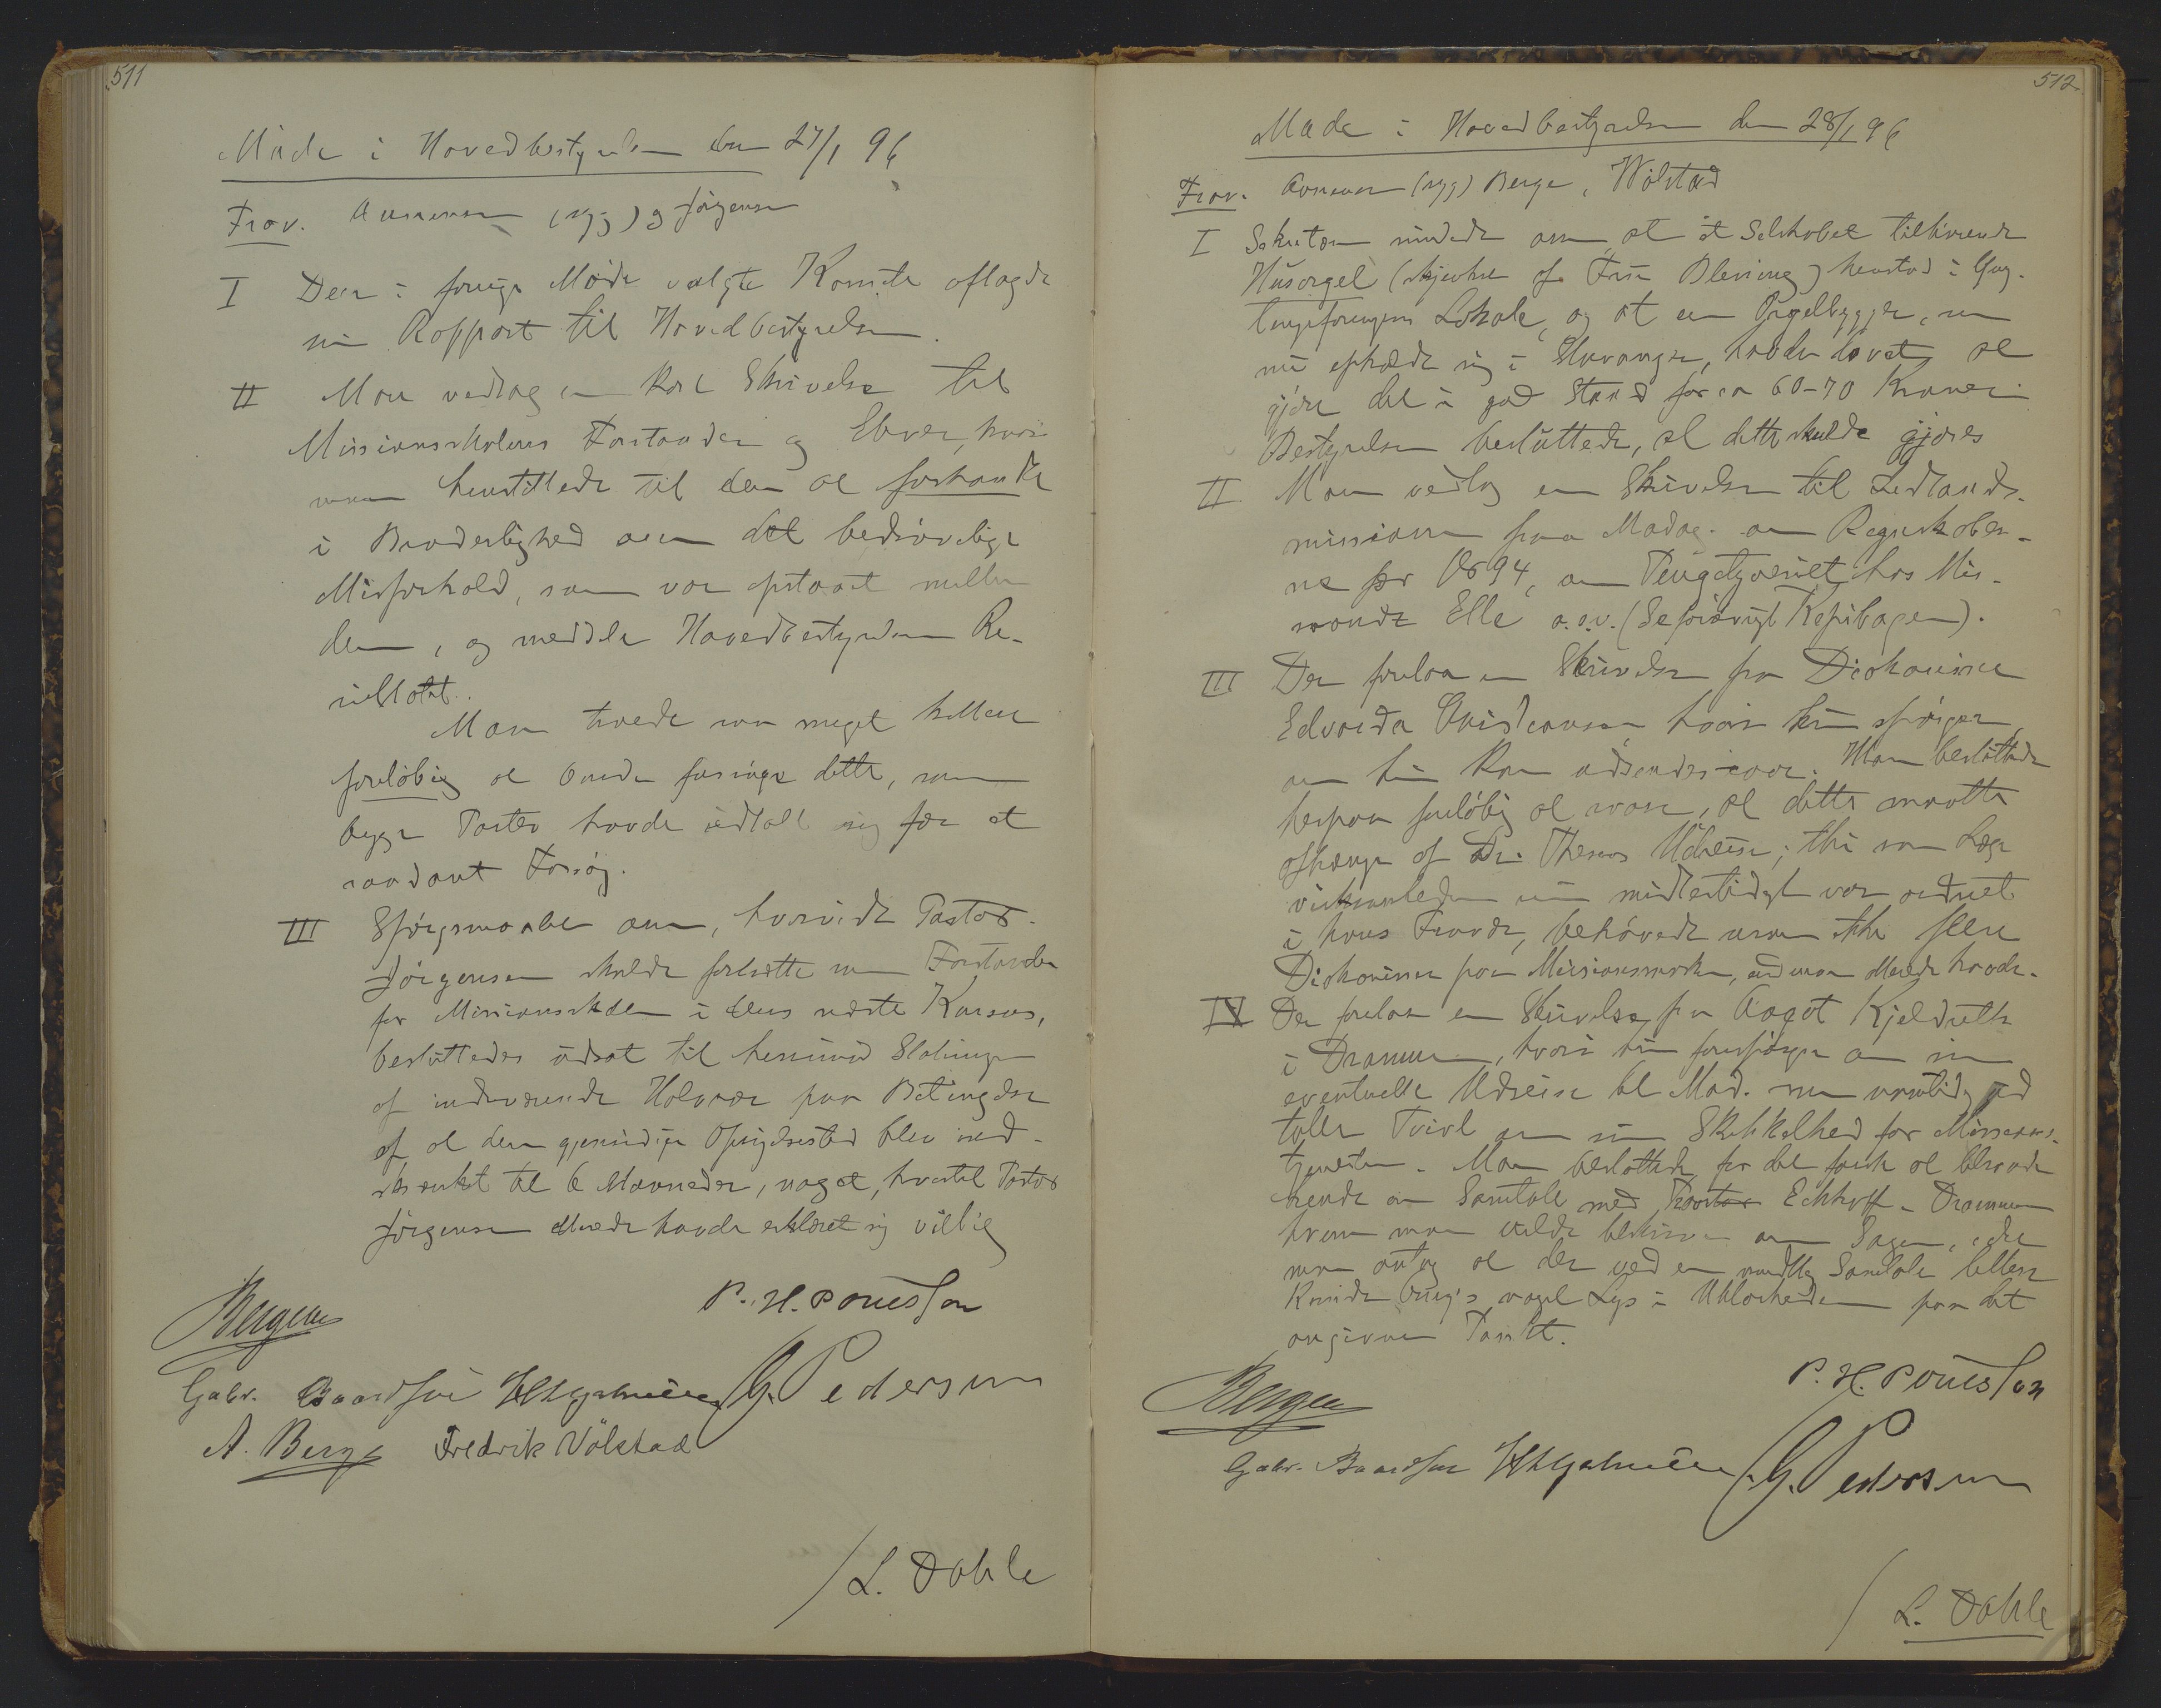 511
Møde i Hovedbestyrelsen den 27/1 96
Frav. Aanensen (syg) og Jørgensen
I Den i forrige Møde valgte Komite aflagde
sin Rapport til Hovedbestyrelsen.
II Man vedtog en kort Skrivelse til
Missionsskolens Forstander og Elever, hvori
man henstillede til dem at forhandle
i Broderlighed om det bedrøvelige
Misforhold, som var opstaaet mellem
dem, og meddele Hovedbestyrelsen Re-
sultatet.
Man troede saa meget hellere
foreløbig at burde forsøge dette, som
begge Parter havde udtalt sig for et
saadant Forsøg.
III Spørgsmaalet om, hvorvidt Pastor
Jørgensen skulde fortsætte som Forstander
for Missionsskolen i dens næste Kursus,
besluttedes udsat til henimod Slutningen
af indeværende Halvaar paa Betingelse
af at den gjensidige Opsigelsestid blev ind-
skrænket til 6 Maaneder, noget, hvortil Pastor
Jørgensen allerede havde erklæret sig villig
P. H. Pouesson
Bergen
Gabr. Baardsen G. Pedersen
A. Berge Fredrik Vølstad
/ L. Dahle
512.
Møde i Hovedbestyrelsen den 28/1 96
Frav. Aanensen (syg) Berge, Wølstad
I Sekretæren mindede om, at et Selskabet tilhørende
Husorgel (skjænket af Frue Blessing) henstod i Yng-
lingeforengens Lokale, og at en Orgelbygger, som
nu opholdt sig i Stavanger, havde lovet at
gjøre det i god Stand for ca 60-70 Kroner.
Bestyrelsen besluttede, at dette skulde gjøres
II Man vedtog en Skrivelse til Indlands-
missionen paa Madag. om Regnskaber-
ne for Aar 94, om Pengetyveriet hos Mis-
sionær Elle o.s.v. (Se forøvrigt Kopibogen).
III Der forelaa en Skrivelse fra Diakonisse
Edvarda Christensen, hvori hun spørger,
om hun kan udsendes iaar. Man besluttede
herpaa foreløbig at svare, at dette maatte
afhænge af Dr. Thesens Udreise; thi som Læge
virksomheden nu midlertidigt var ordnet
i hans Fravær, behøvede man ikke flere
Diakonisser paa Missionsmarken, end man allerede havde.
IV Der forelaa en Skrivelse fra Aagot Kjeldseth
i Drammen, hvori hun forespørger om sin
eventuelle Udreise til Mad. men samtidig ud
taler Tvivl om sin Skikkethed for Missions-
tjenesten. Man besluttede for det første at tilraade
hende en Samtale med Pastor Eckhoff - Drammen
hvem man vilde tilskrive om Sagen, idet
man antog at der ved en mundtlig Samtale lettere
kunde bringes noget Lys i Uklarheden paa det
angivne Punkt.
P. H. Pouesson
Bergen
Gabr. Baardsen G. Pedersen
/ L. Dahle